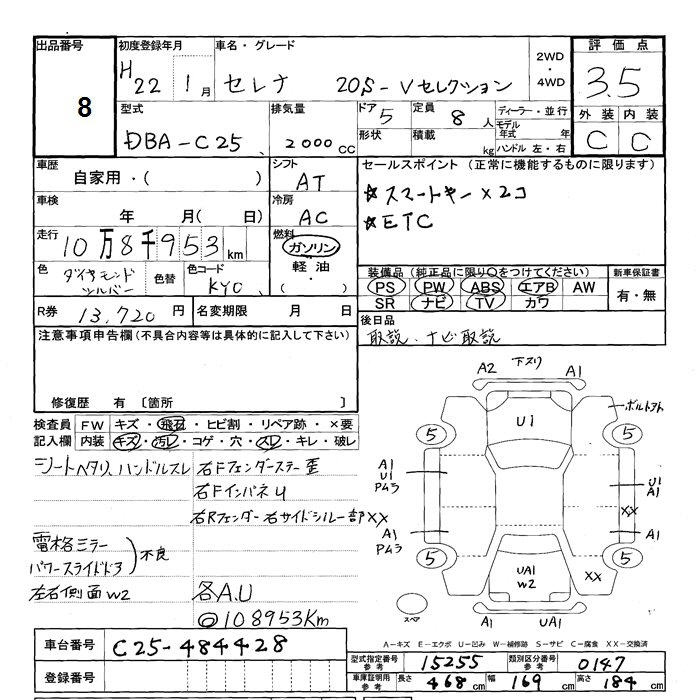 出品番号 初度登録年月 車名・グレード 2WD ・ 4WD 評価点
8 H22 1月 セレナ 20S-Vセレクション 3.5
型式 排気量 ドア 5 定員 8人 ディーラー・並行 外装 内装
DBA-C25 2000CC 形状 積載 kg モデル年式 年 ハンドル 左・右 C C
車歴 シフト セールスポイント (正常に機能するものに限ります)
自家用・( ) AT
☆スマートキー×2コ
車検 冷房
年 月( 日) AC
☆ETC
走行 燃料
10万8千953km ガソリン
軽油・( )
色 ダイヤモンドシルバー 色替 色コード KY0
装備品(純正品に限り○をつけてください) 新車保証書
PS PW ABS エアB AW 有・無
SR ナビ TV カワ
R券 13,720円 名変期限 月 日
後日品
取説.ナビ取説
注意事項申告欄(不具合内容等は具体的に記入して下さい)
修復歴 有 〔箇所 〕
検査員記入欄 FW キズ・飛石・ヒビ割・リペア跡・×要
内装 キズ・汚レ・コゲ・穴・スレ・キレ・破レ
シートヘタリ、ハンドルスレ
右Fフェンダーステー歪
右FインパネU
右Rフェンダー右サイドシルー部XX
電格ミラー
パワースライドドア
不良
左右側面W2
各A.U
◎108953Km
A2 下スリ A1
U1
ボルトアト
5 5
A1
U1
Pムラ
U1
A1
XX
A1
Pムラ
A1
5 5
UA1
W2
XX
スペア
A1 UA1
A-キズ E-エクボ U-凹み W-補修跡 S-サビ C-腐食 XX-交換済
車台番号 C25-484428
登録番号
型式指定番号 参考 15255 類別区分番号 参考 0147
車庫証明用 参考 長さ 468cm 幅 169cm 高さ 184cm